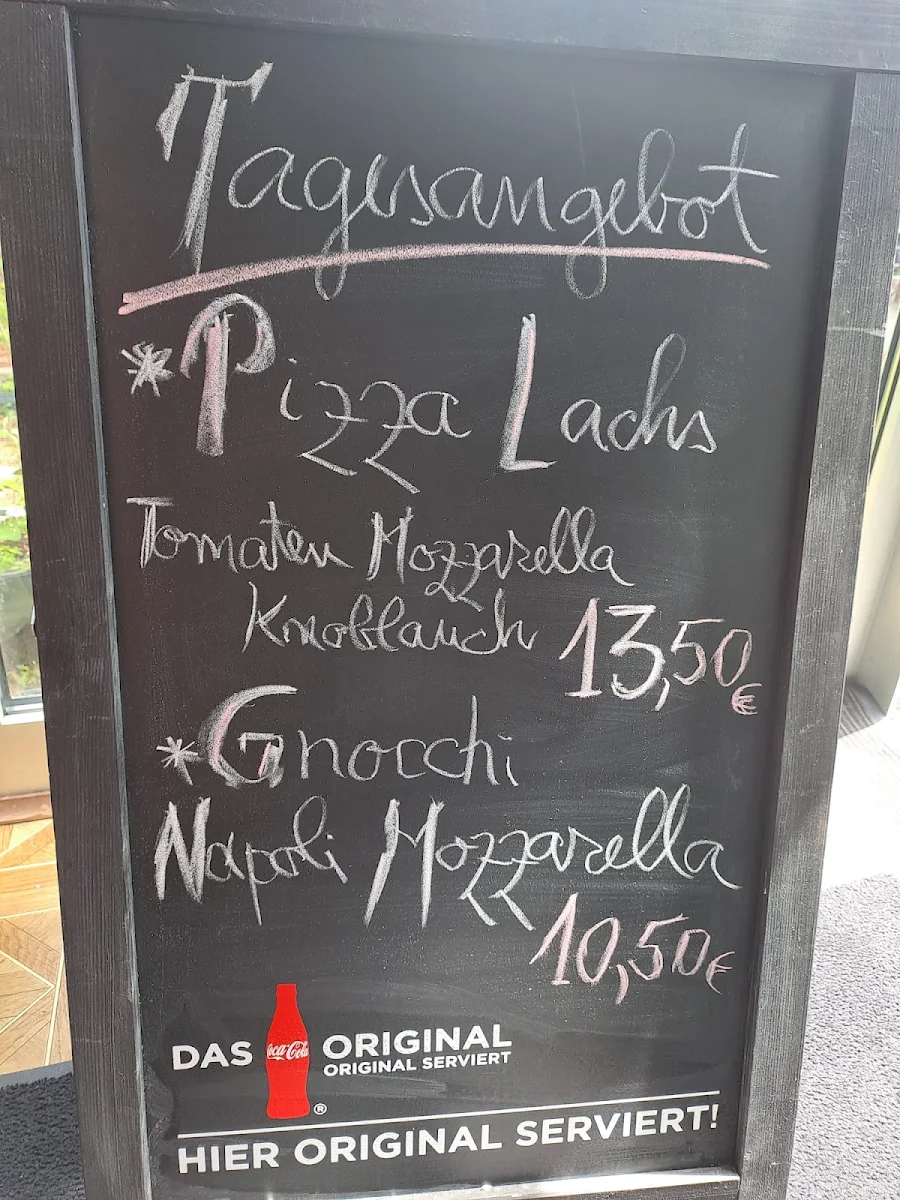 Tagesangebot
*Pizza Lachs
Tomaten Mozzarella
Knoblauch 13,50€
*Gnocchi
Napoli Mozzarella
10,50€
DAS Coca-Cola ORIGINAL
ORIGINAL SERVIERT
®
HIER ORIGINAL SERVIERT!